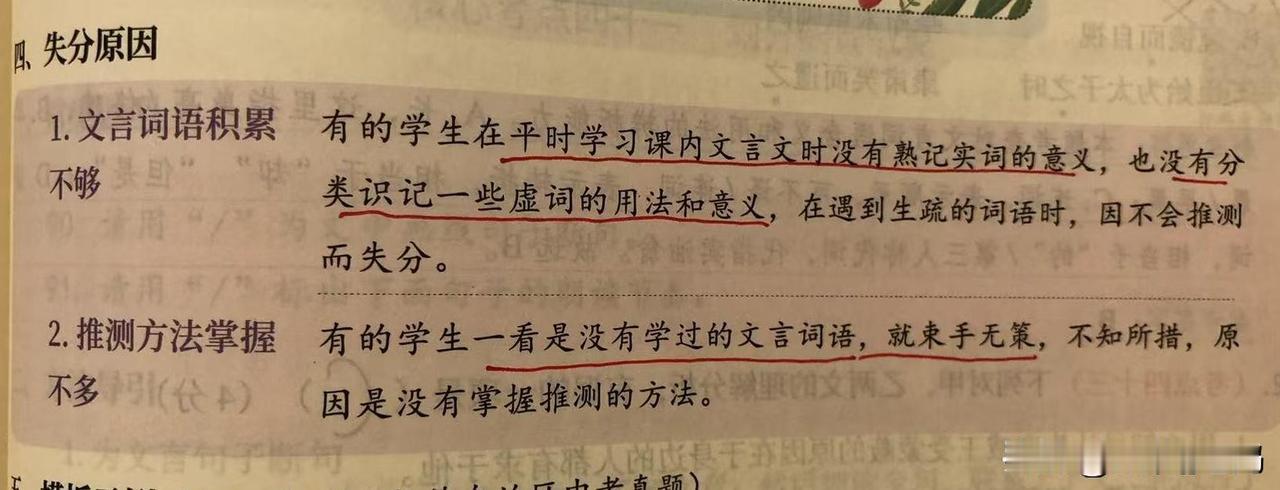 四、失分原因
1.文言词语积累不够
有的学生在平时学习课内文言文时没有熟记实词的意义，也没有分
类识记一些虚词的用法和意义，在遇到生疏的词语时，因不会推测
而失分。
2.推测方法掌握不多
有的学生一看是没有学过的文言词语，就束手无策，不知所措，原
因是没有掌握推测的方法。